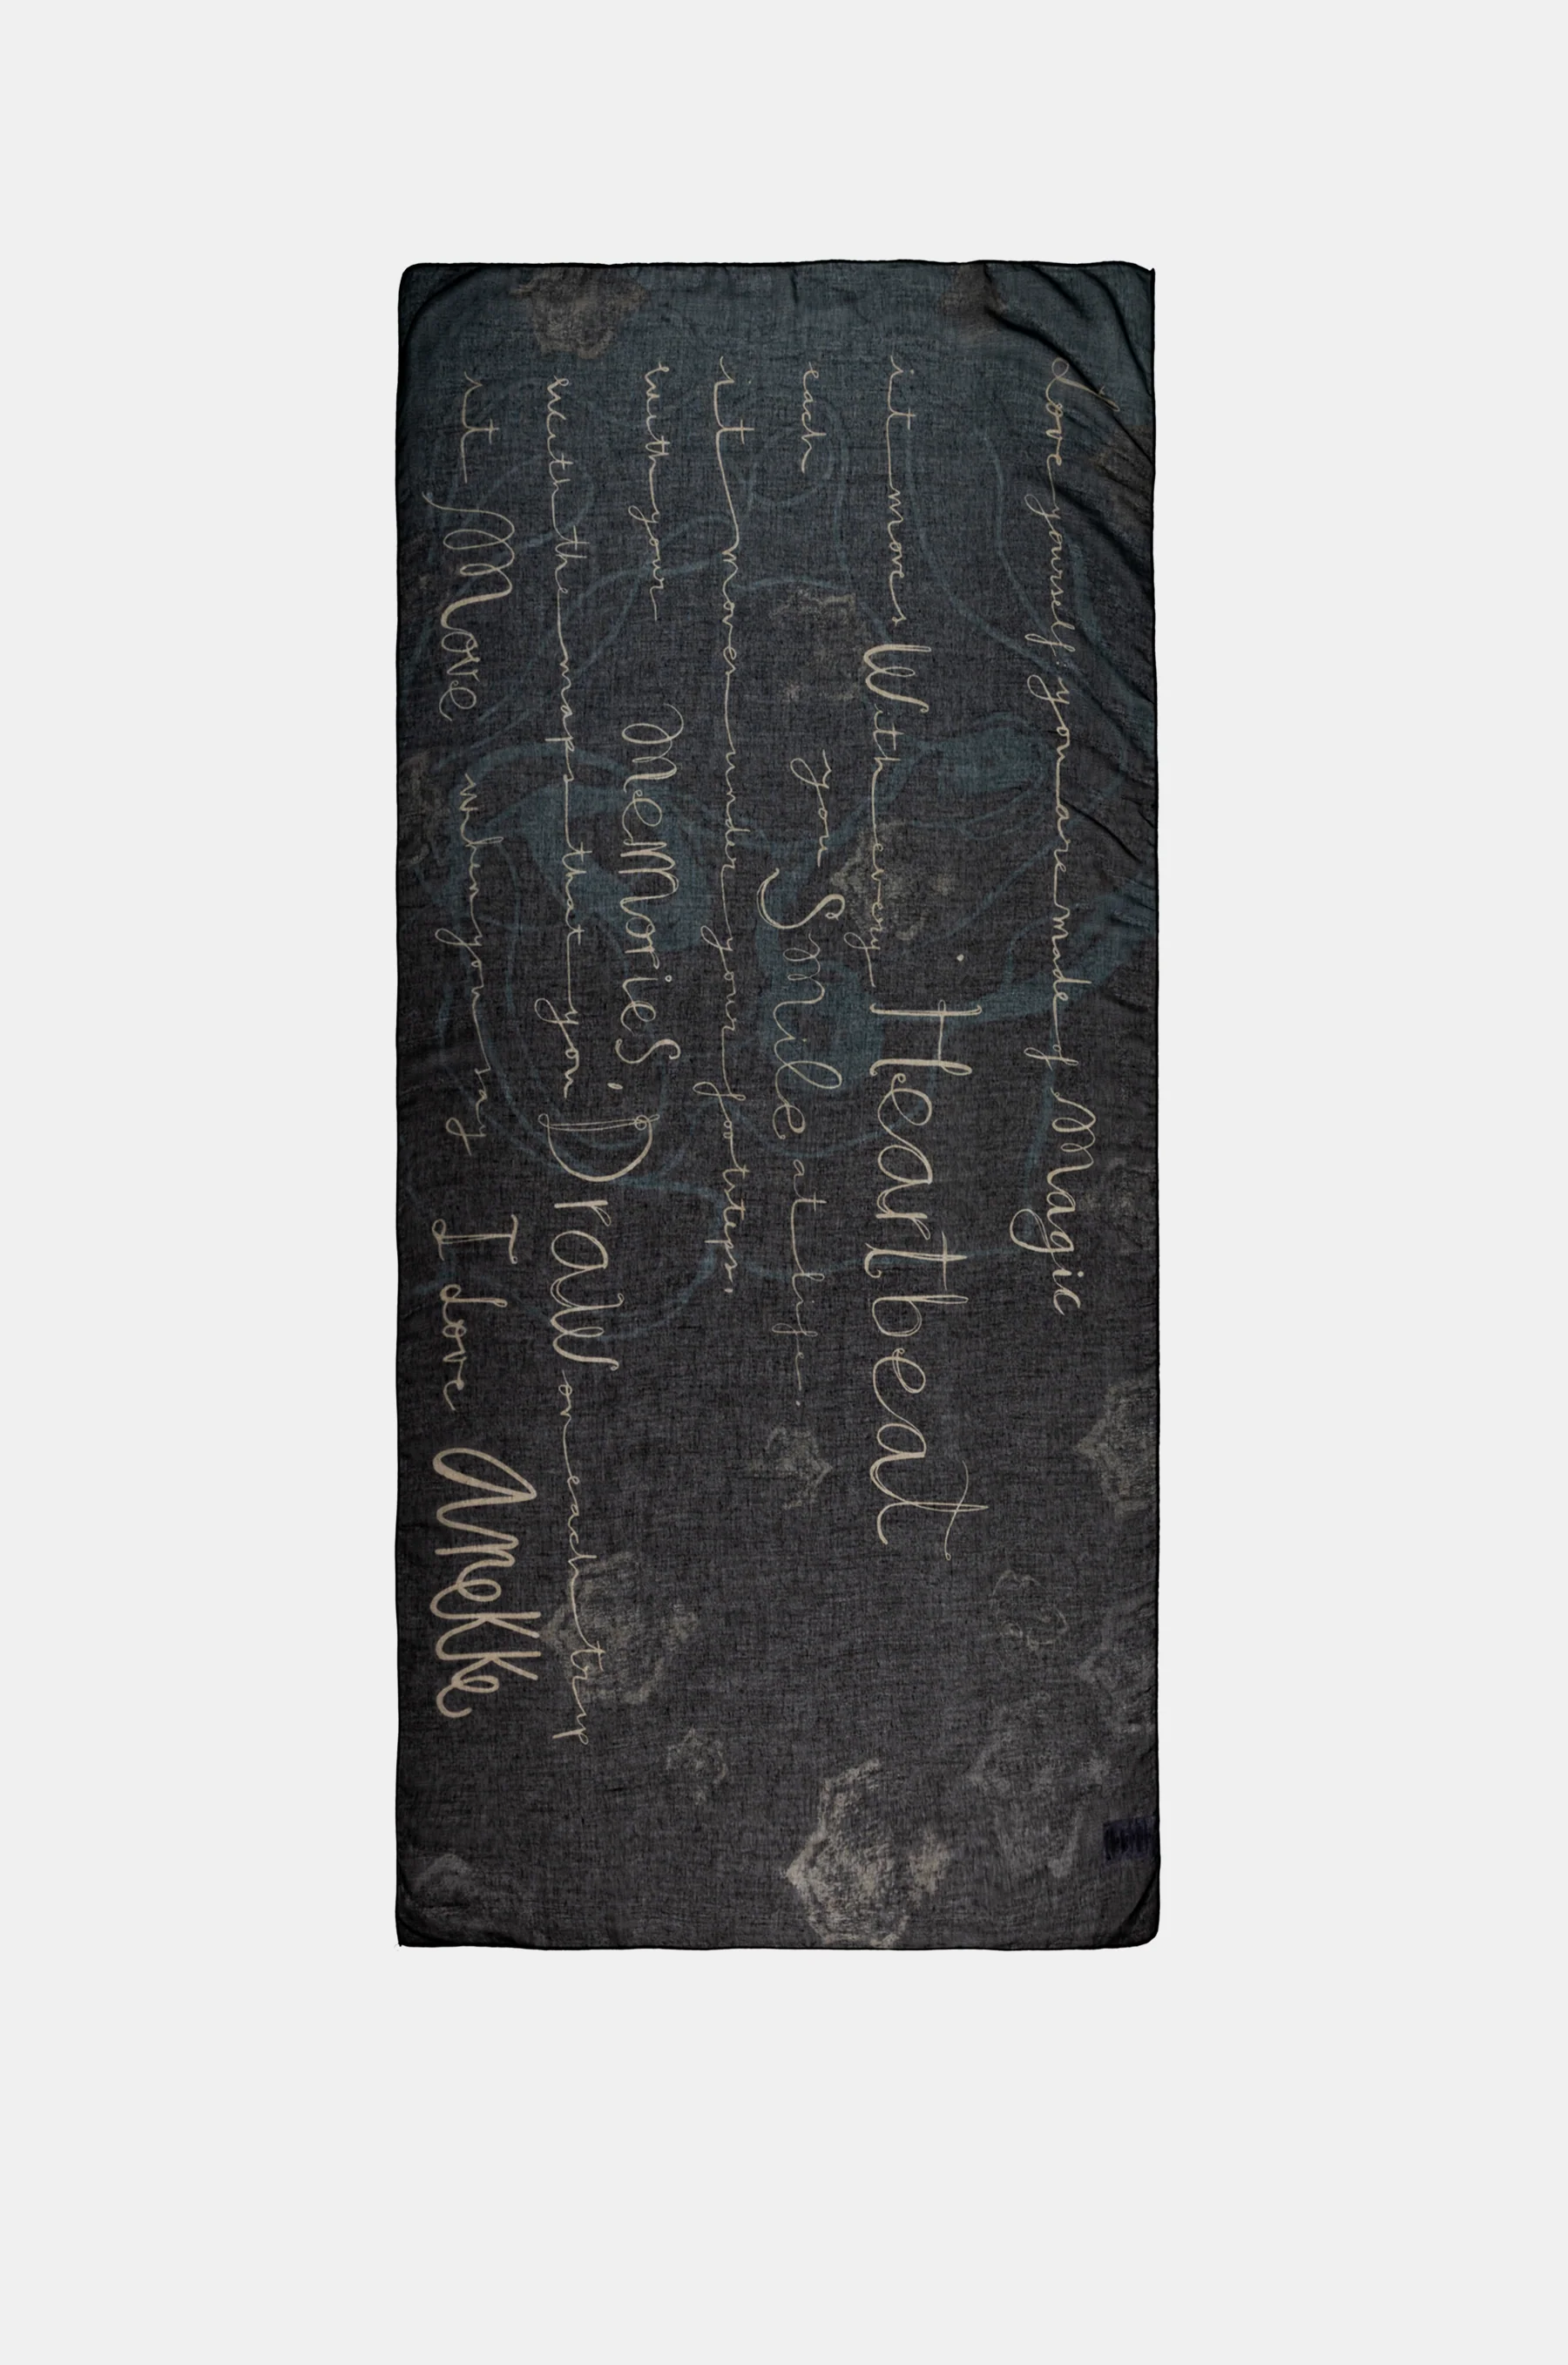 Love yourself, you are made of Magic
it moves With every Heartbeat
each you Smile at life.
it moves under your footsteps,
with your Memories,
with the maps that you Draw on each trip
it Move when you say I love Anekke